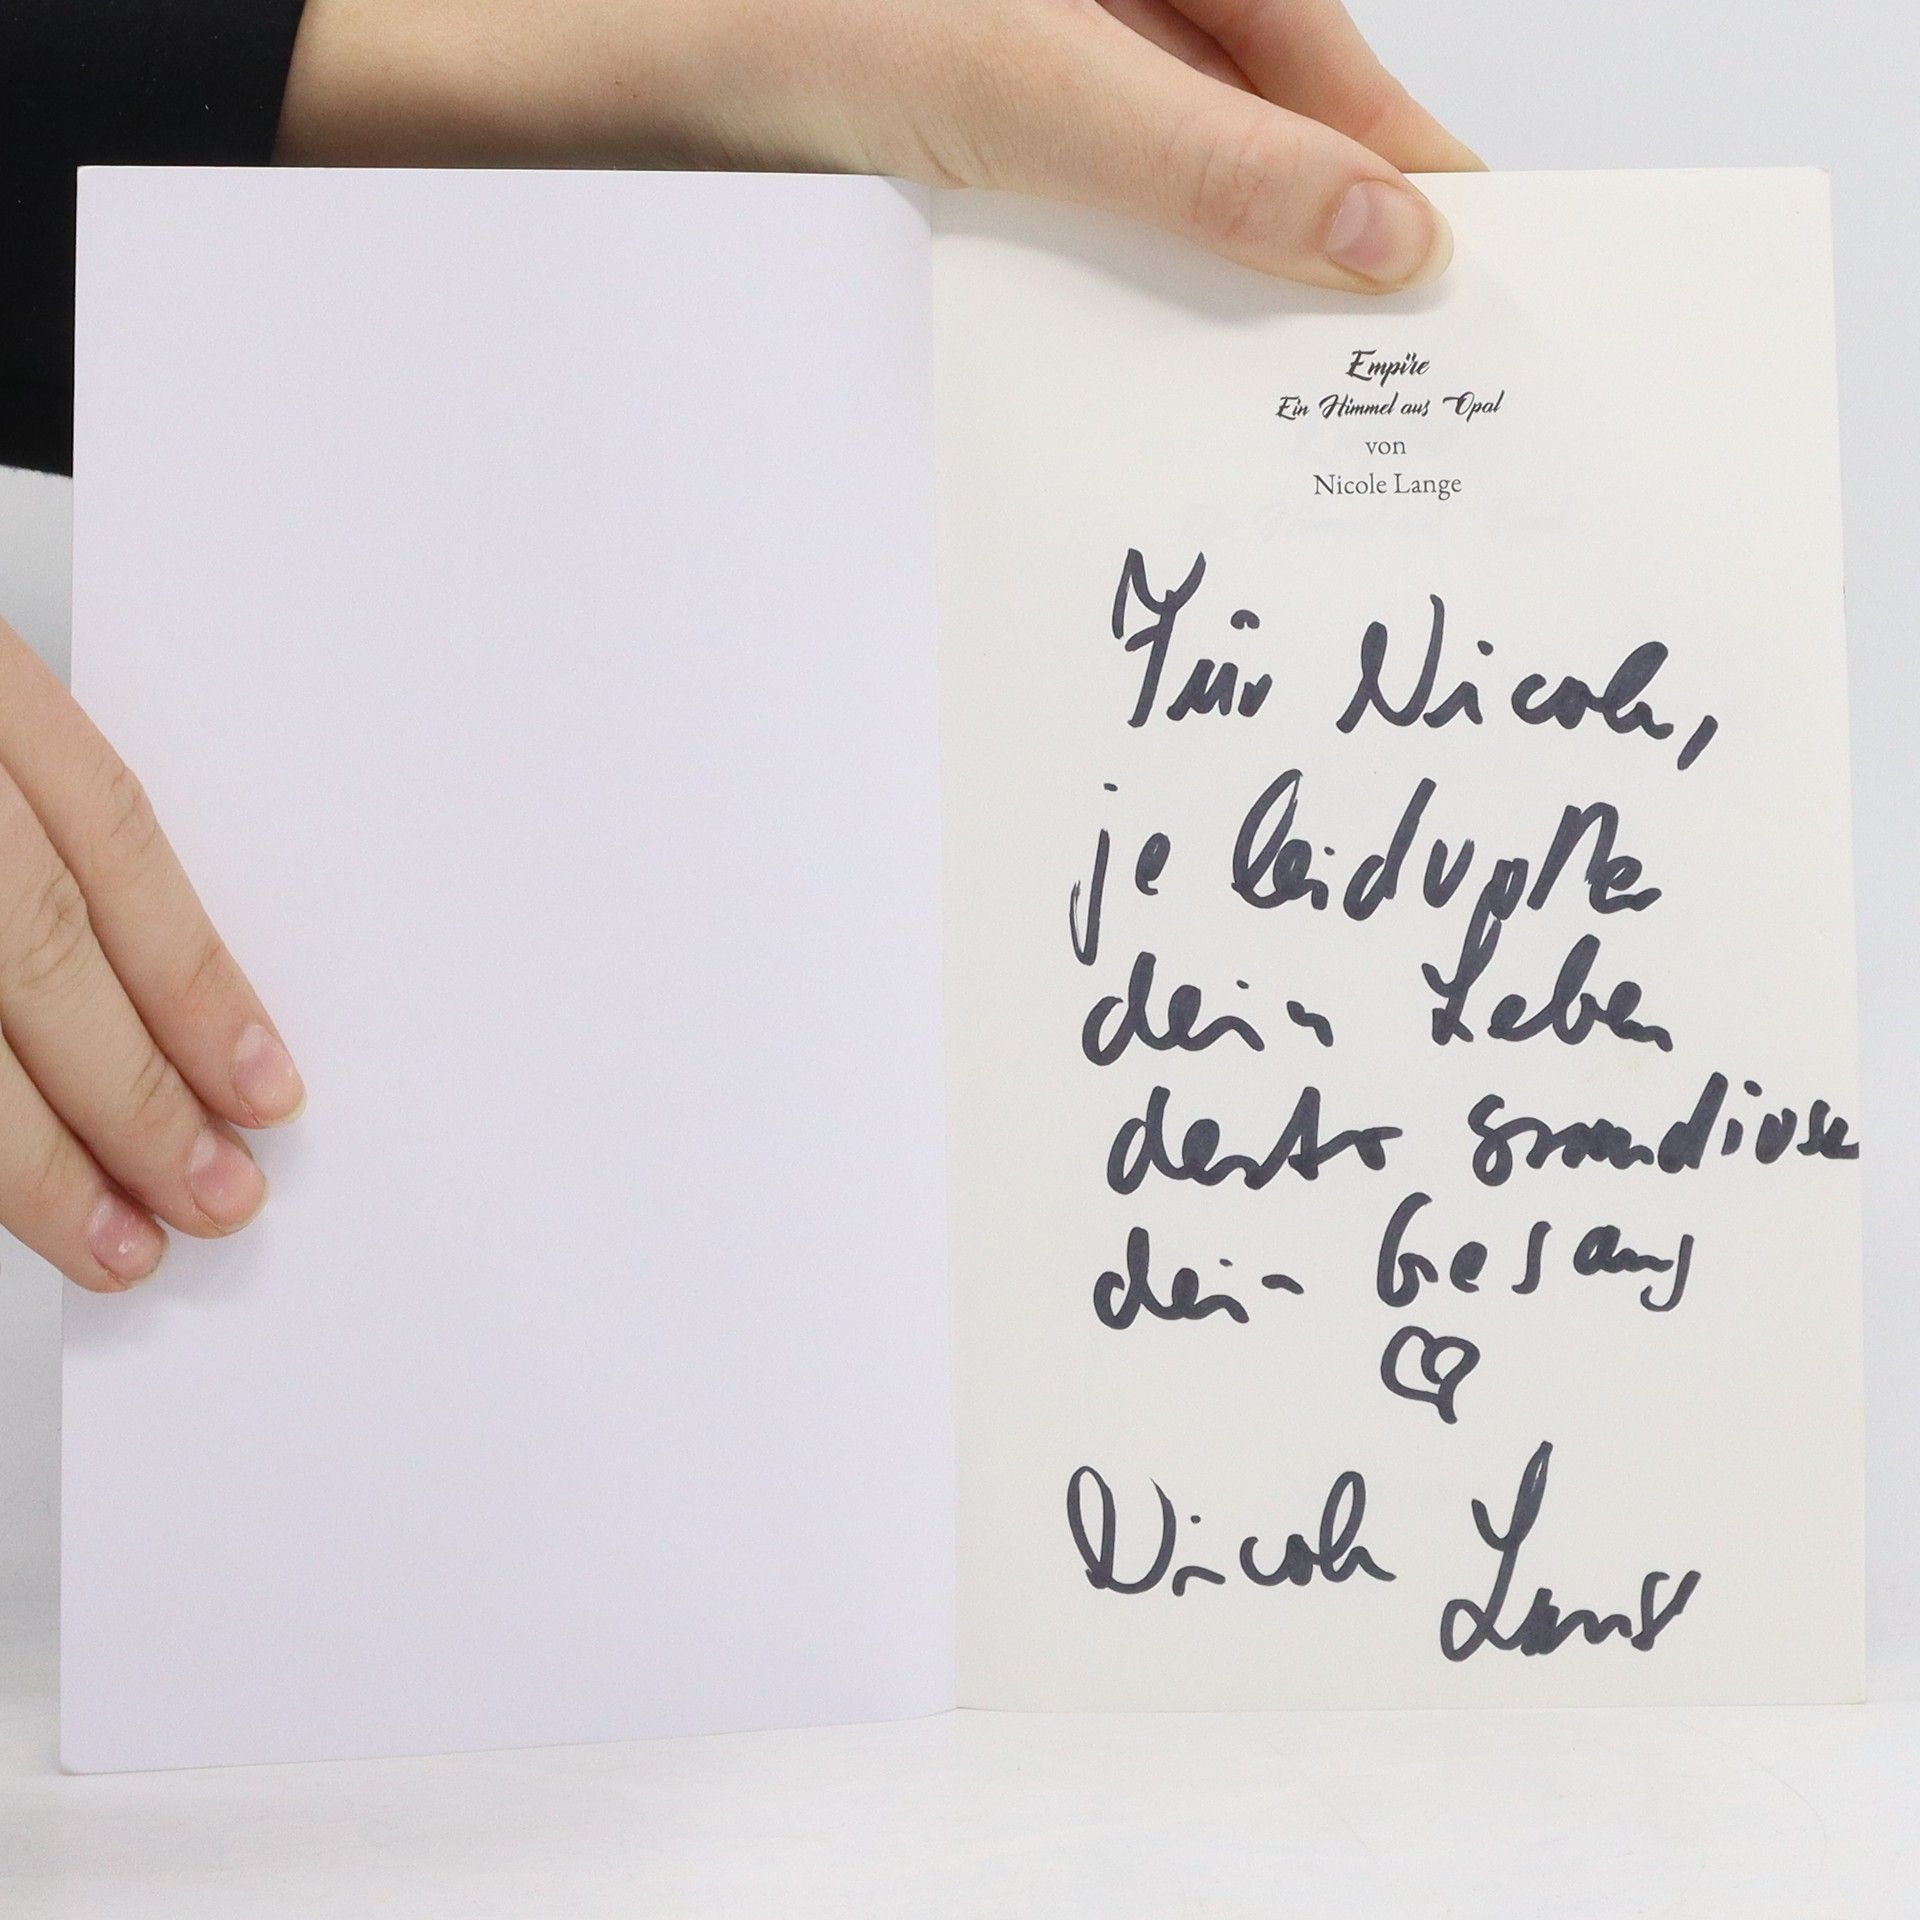 Empire
Ein Himmel aus Opal
von
Nicole Lange
Für Nicole,
je leidvoller
dein Leben
desto grandioser
dein Gesang
Nicole Lange